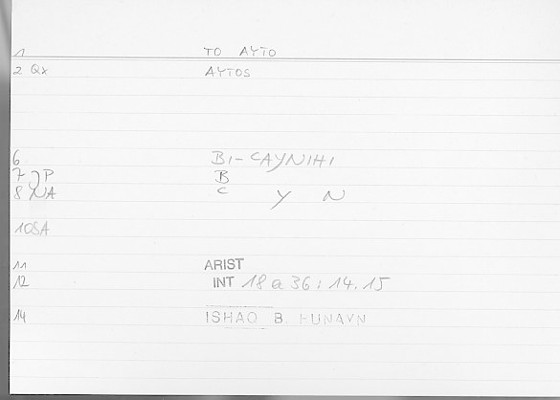 1 TO AYTO
2 Qx AYTOS
6 BI-CAYNIHI
7 P B
8 NA C Y N
10 SA
11 ARIST
12 INT 18 a 36 : 14.15
14 ISHAQ B. HUNAYN